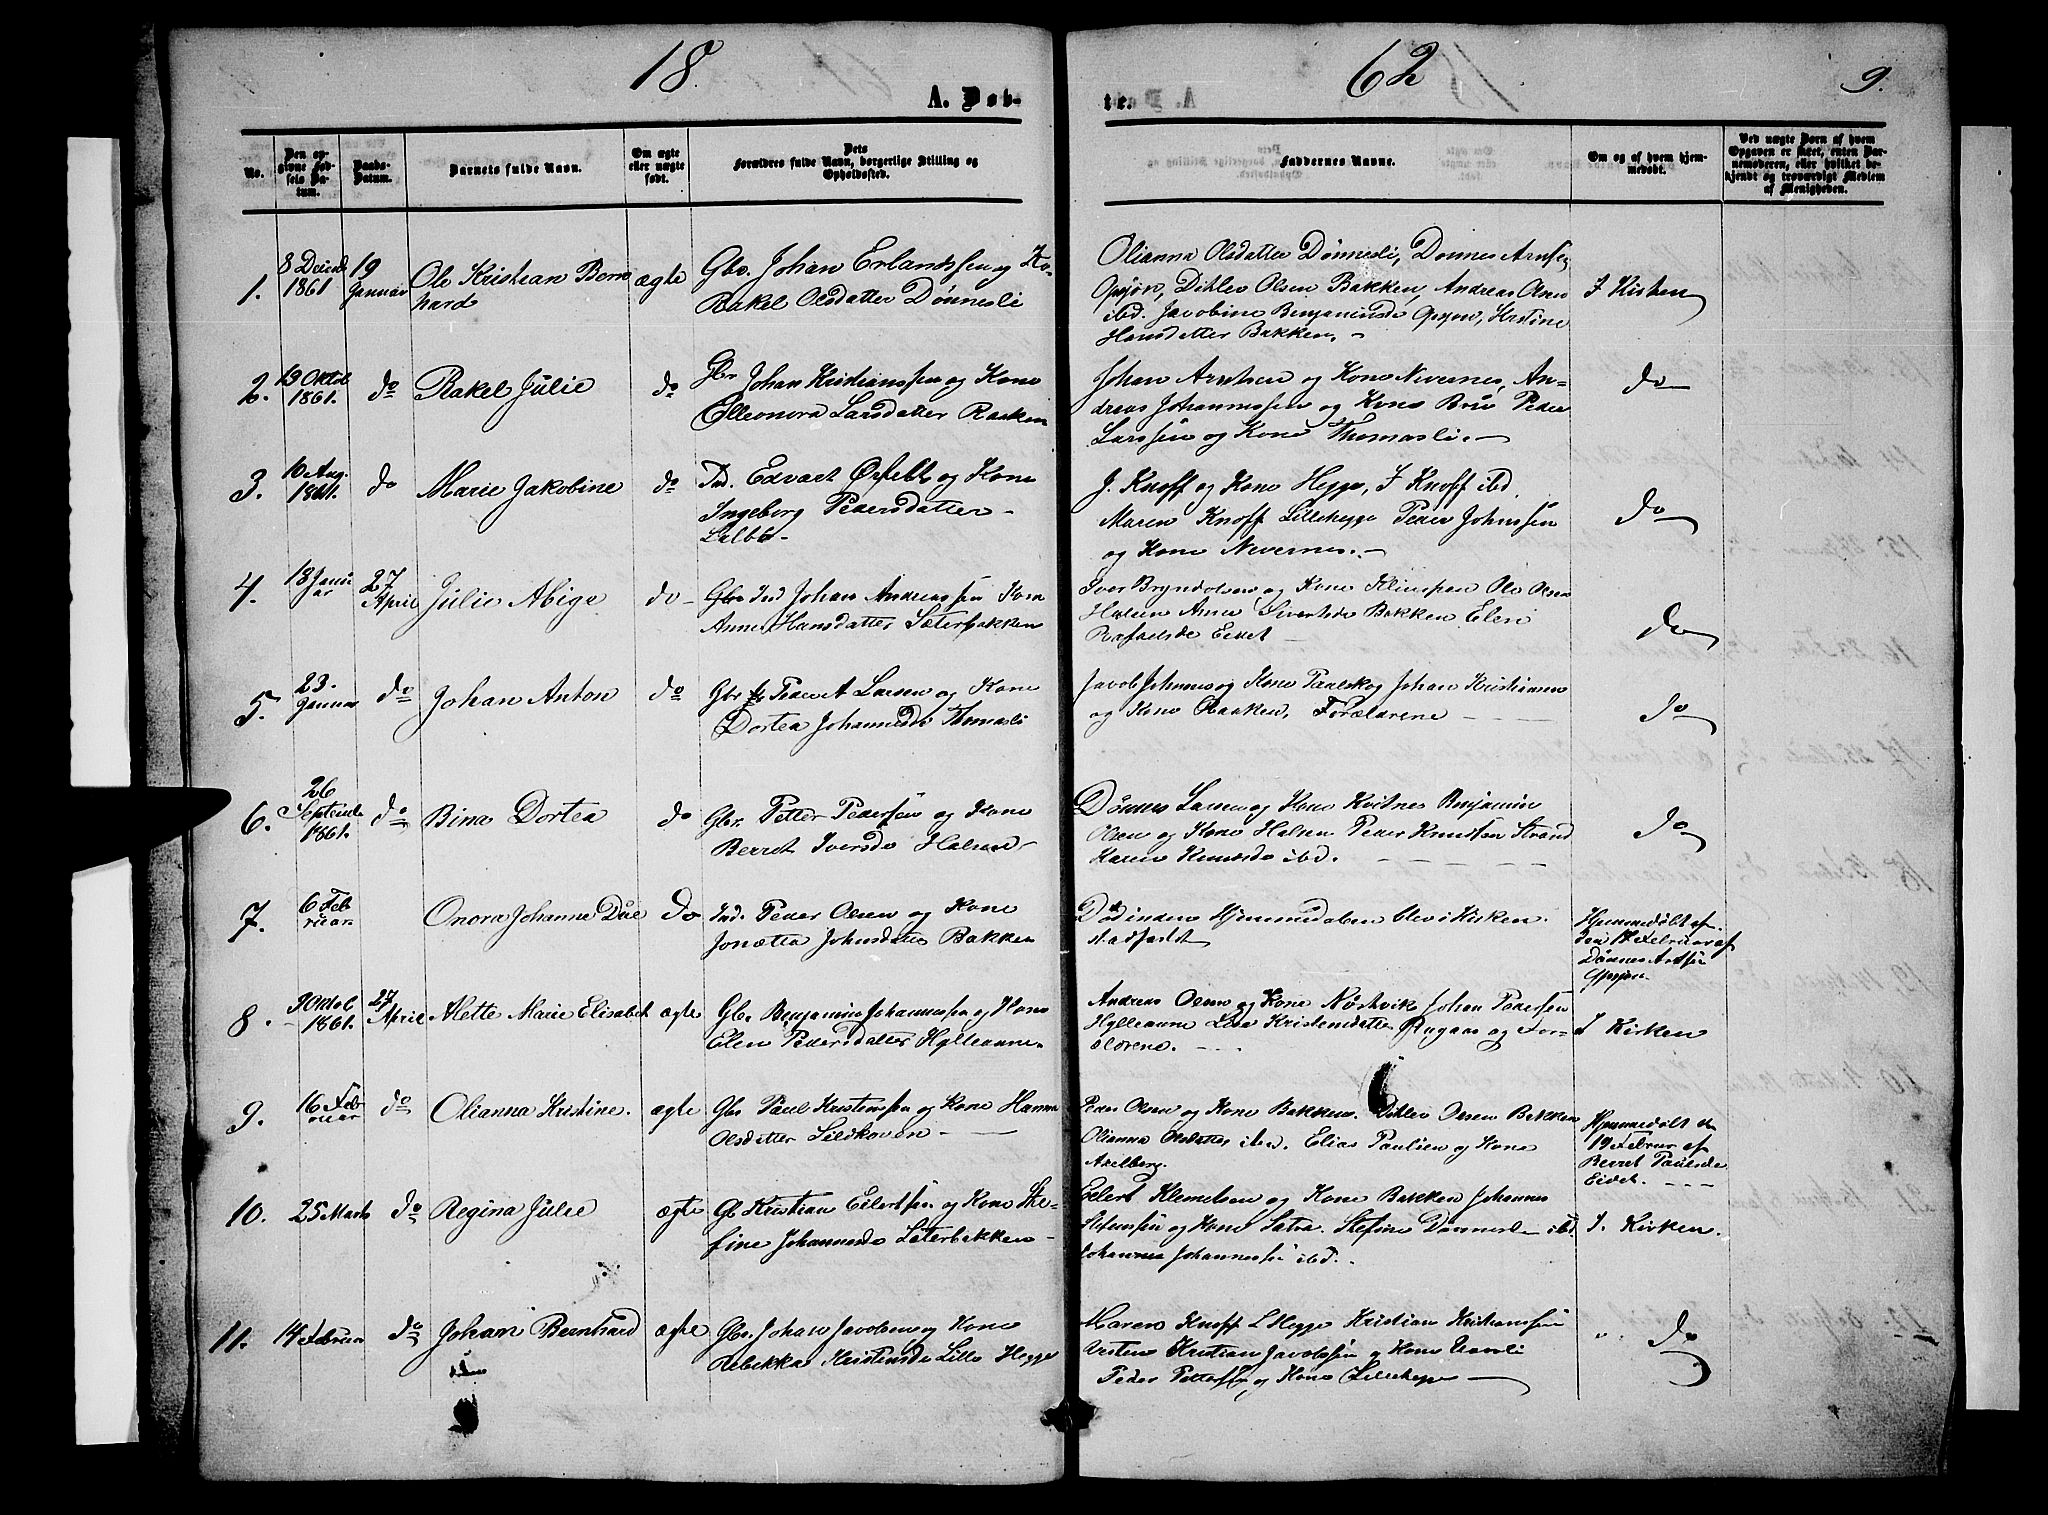 18 62 9.
A. Døb- te.
No.
Den opgivne Fødsels Datum.
Daabs-Datum.
Barnets fulde Navn.
Om ægte eller uægte født.
Dets Forældres fulde Navn, borgerlige Stilling og Opholdssted.
Faddernes Navne.
Om og af hvem hjemmedøbt.
Ved uægte Børn af hvem Opgaven er skeet, enten Barnemoderen, eller hvilket bekjendt og troværdigt Medlem af Menigheden.
1. 8 Decemb 1861 19 Januar Ole Kristian Bernhard ægte Gbr. Johan Erlandssen og Ko-
Rakel Olsdatter Dønnesli
Olianna Olsdatter Dønnesli, Dønnes Arntsen
Opsjøn, Ditlev Olsen Bakken, Andreas Olsen
ibd. Jacobine Benjaminsd Opsjøn, Kristine
Hansdatter Bakken.
I Kirken
2. 19 Oktob 1861. do Rakel Julie do Gbr Johan Kristianssen og Kone
Elleonora Larsdatter Raaken
Johan Arntsen og Kone Nevernes, An-
dreas Johannessen og Kone Bru Peder
Larssen og Kone Thomasli.
do
3. 10 Aug. 1861. do Marie Jakobine do Ind. Edvart Ørfelt og Kone
Ingeborg Pedersdatter
J. Knoff og Kone Hegge, J Knoff ibd
Maren Knoff Lillehegge Peder Johnssen
og Kone Nevernes.
do
4. 18 Januar 27 April Julie Abige do Gbr Ind Johan Andreassen Kone
Anne Hansdatter Sæterbakken
Iver Bryndolsen og Kone Klimpen Ole Olsen
Halsen Anne Sivertsd Bakken Elen
Rafaelsd Eidet
do
5. 23. Januar do Johan Anton do Gbr Peder A Larsen og Kone
Dortea Johannesd Thomasli
Jacob Johnsen og Kone Paalskog Johan Kristiansen
og Kone Raaken. Forældrene
do
6. 26 Septemb 1861. do Bina Dortea do Gbr. Petter Pedersen og Kone
Berret Iversd Halsen
Dønnes Larsen og Kone Kvitnes Benjamin
Olsen og Kone Halsen Peder Knudsen Strand
Karen Knudsd ibd.
do
7. 6 Februar Onora Johanna Due do Ind. Peder Olsen og Kone
Jonetta Johnsdatter Bakken
Død inden Hjemmedaaben blev i Kirken
stadfæstet
Hjemmedøbt af
den 17 Februar af
Dønnes Arntsen
Opsjøn.
8. 9 Oktob 1861. 27 April Alette Marie Elisabet ægte Gbr. Benjamin Johannessen og Kone
Elen Pedersdatter Hylleaune.
Andreas Olsen og Kone Nøstvik Johan Pedersen
Hylleaune Lea Kristensdatter Rugaas og For-
ældrene.
I Kirken
9. 16 Februar do Olianna Kristine. ægte Gbr Paul Kristensen og Kone Hanna
Olsdatter Sildhoven
Peder Olsen og Kone Bakken. Ditlev Olsen Bakken
Olianna Olsdatter ibd. Elias Paulsen og Kone
Axelberg.
Hjemmedøbt den
19 Februar af
Berret Paulsd
Eidet.
10. 25 Marts do Regina Julie ægte Gb Kristian Eilertsen og Kone Ste-
fine Johannesd Sæterbakken
Eilert Klemetsen og Kone Bakken Johannes
Stefensen og Kone Sætra. Stefine ibd
Johannes Johannessen ibd.
I. Kirken.
11. 14 Februar do Johan Bernhard ægte Gbr. Johan Jacobsen og Kone
Rebekka Kristensd Lille Hegge
Maren Knoff L Hegge Kristian Kristiansen
Kristian Jacobsen og Kone
Peder Pettersen og Kone Lillehegge
" do